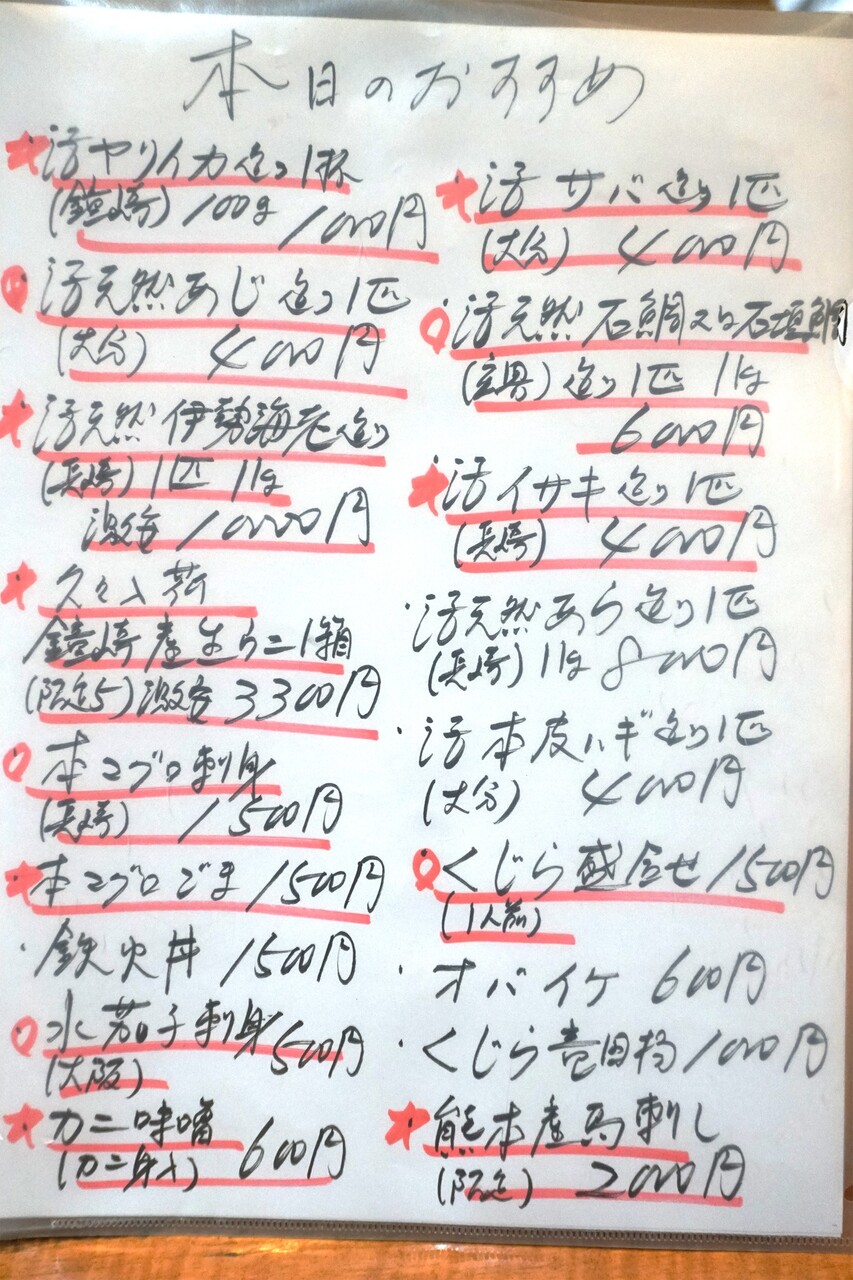 本日のおすすめ
活ヤリイカ造り1杯
(鐘崎) 100g 1000円
活天然あじ造り1匹
(大分) 4000円
活天然伊勢海老造り
(長崎) 1匹 1kg
激安 10000円
久々入荷
鐘崎産生うに1箱
(限定5) 激安 3300円
本マグロ刺身
(長崎) 1500円
本マグロごま 1500円
鉄火丼 1500円
水茄子刺身 500円
(大阪)
カニ味噌
(カニ身入) 600円
活サバ造り1匹
(大分) 4000円
活天然石鯛又は石垣鯛
造り1匹 1kg
6000円
活イサキ造り1匹
(長崎) 4000円
活天然あら造り1匹
(長崎) 1kg 8000円
活本皮ハギ造り1匹
(大分) 4000円
くじら盛合せ 1500円
(1人前)
オバイケ 600円
くじら竜田揚 1000円
熊本産馬刺し
(限定) 2000円